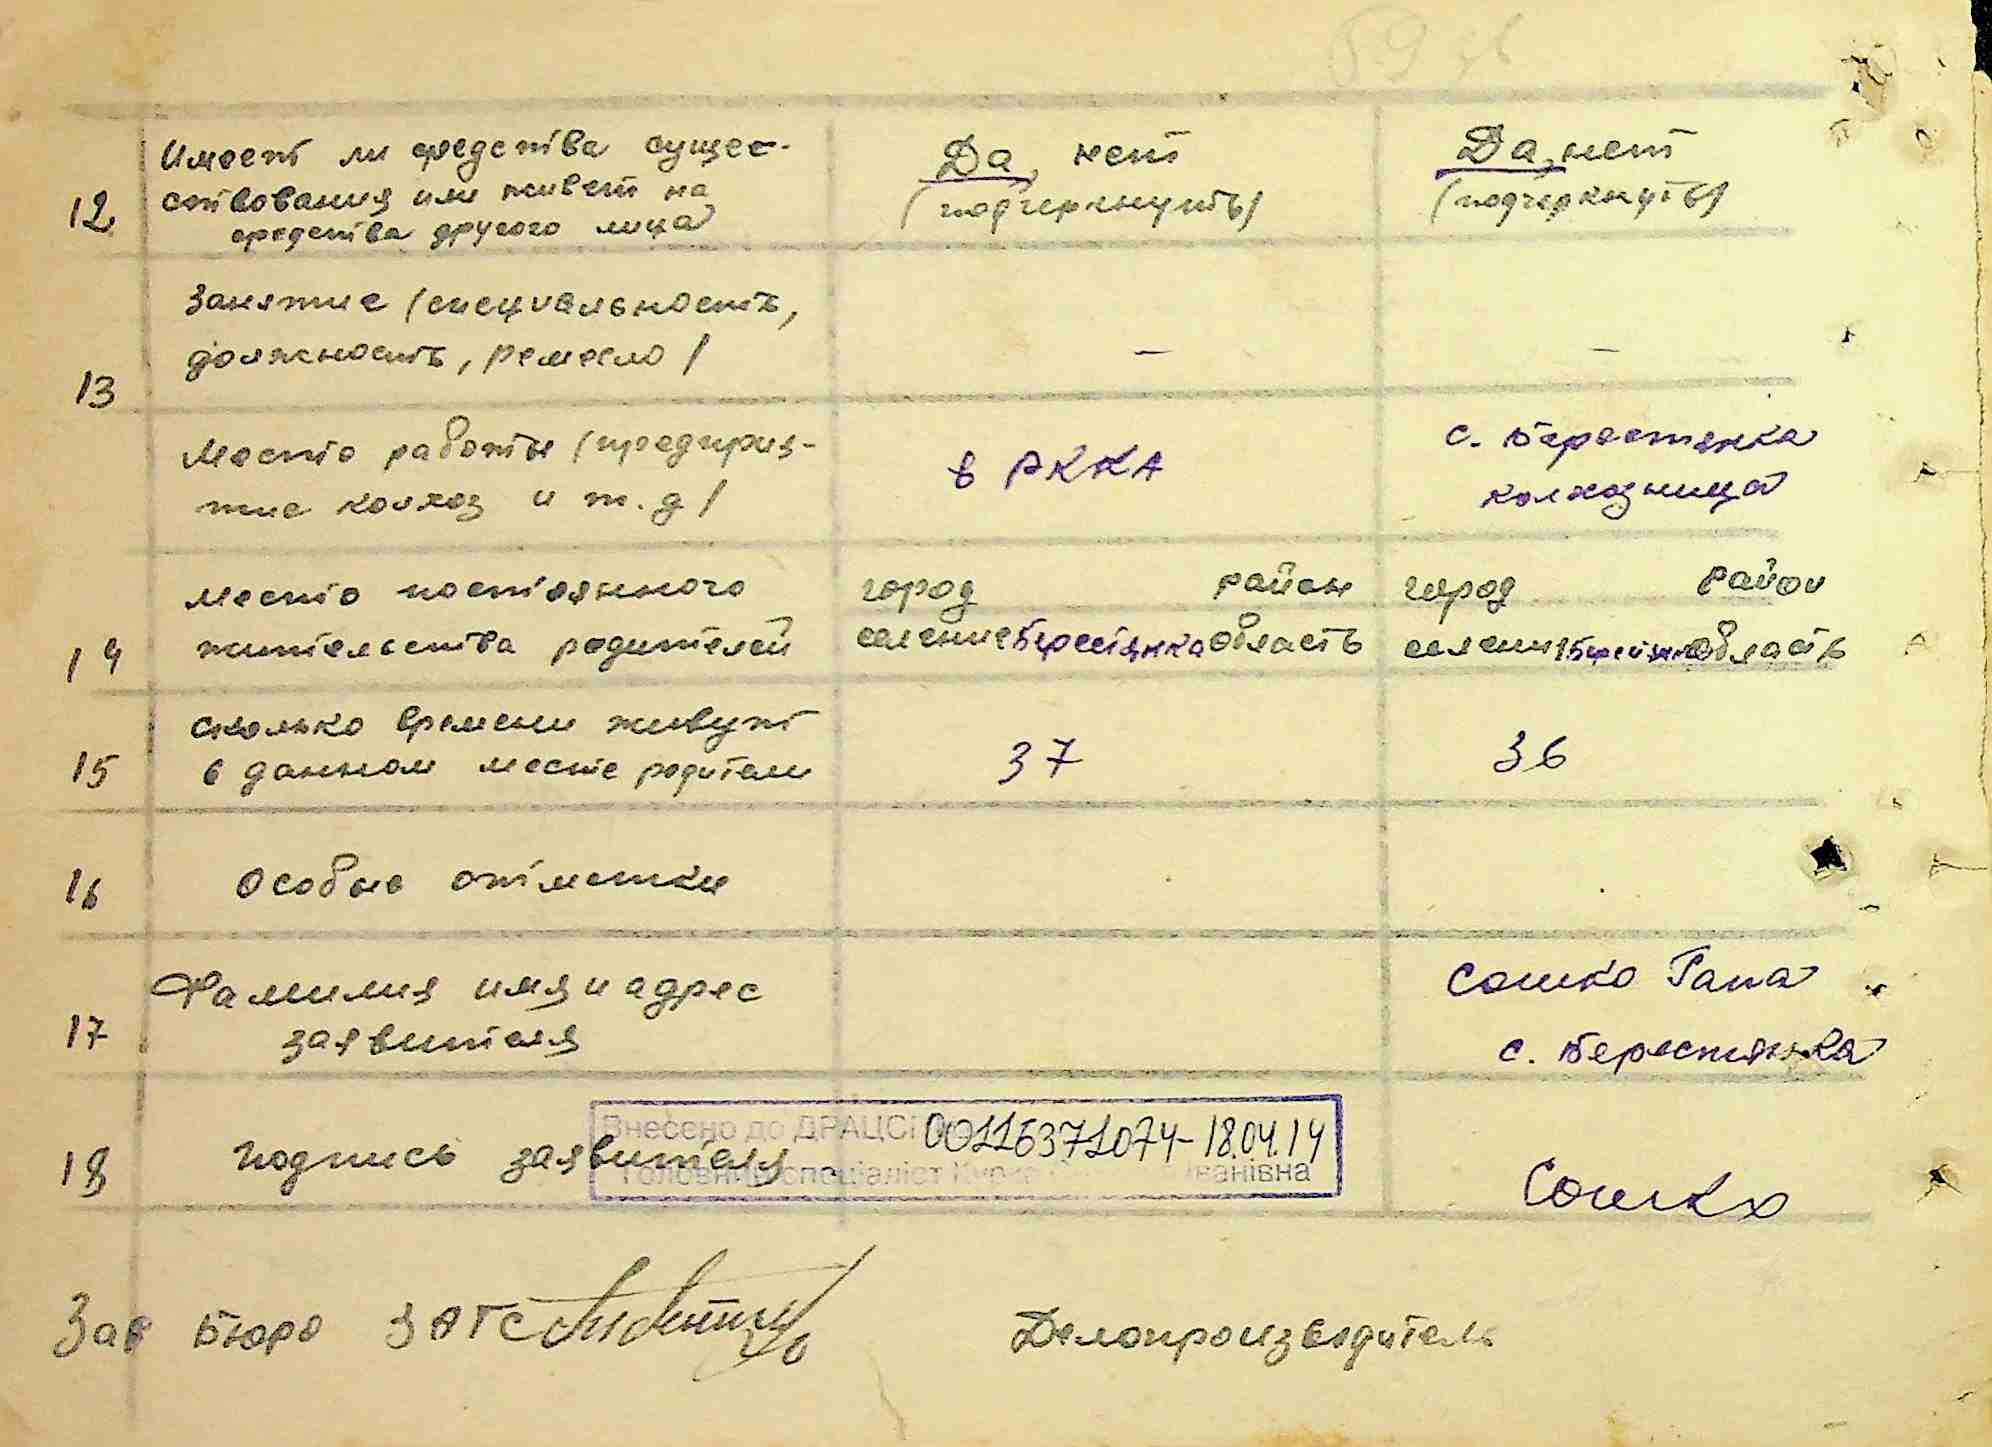 12 Имеет ли средства сущес-
ствования или живет на
средства другого лица
Да, нет
(подчеркнуть)
Да, нет
(подчеркнуть)
13 Занятие (специальность,
должность, ремесло)
—
—
Место работы (предприя-
тие колхоз и т.д)
в РККА
с. Берестянка
колхозница
14 Место постоянного
жительства родителей
город район
селение Берестянка область
город район
селение Берестянка область
15 Сколько времени живут
в данном месте родители
37
36
16 Особые отметки
17 Фамилия имя и адрес
заявителя
Сошко Гапа
с. Берестянка
18 Подпись заявителя
Внесено до ДРАЦСГ 00116371074- 18.04.14
Головний спеціаліст Іванівна
Сошко
Зав Бюро ЗАГС
Делопроизводитель